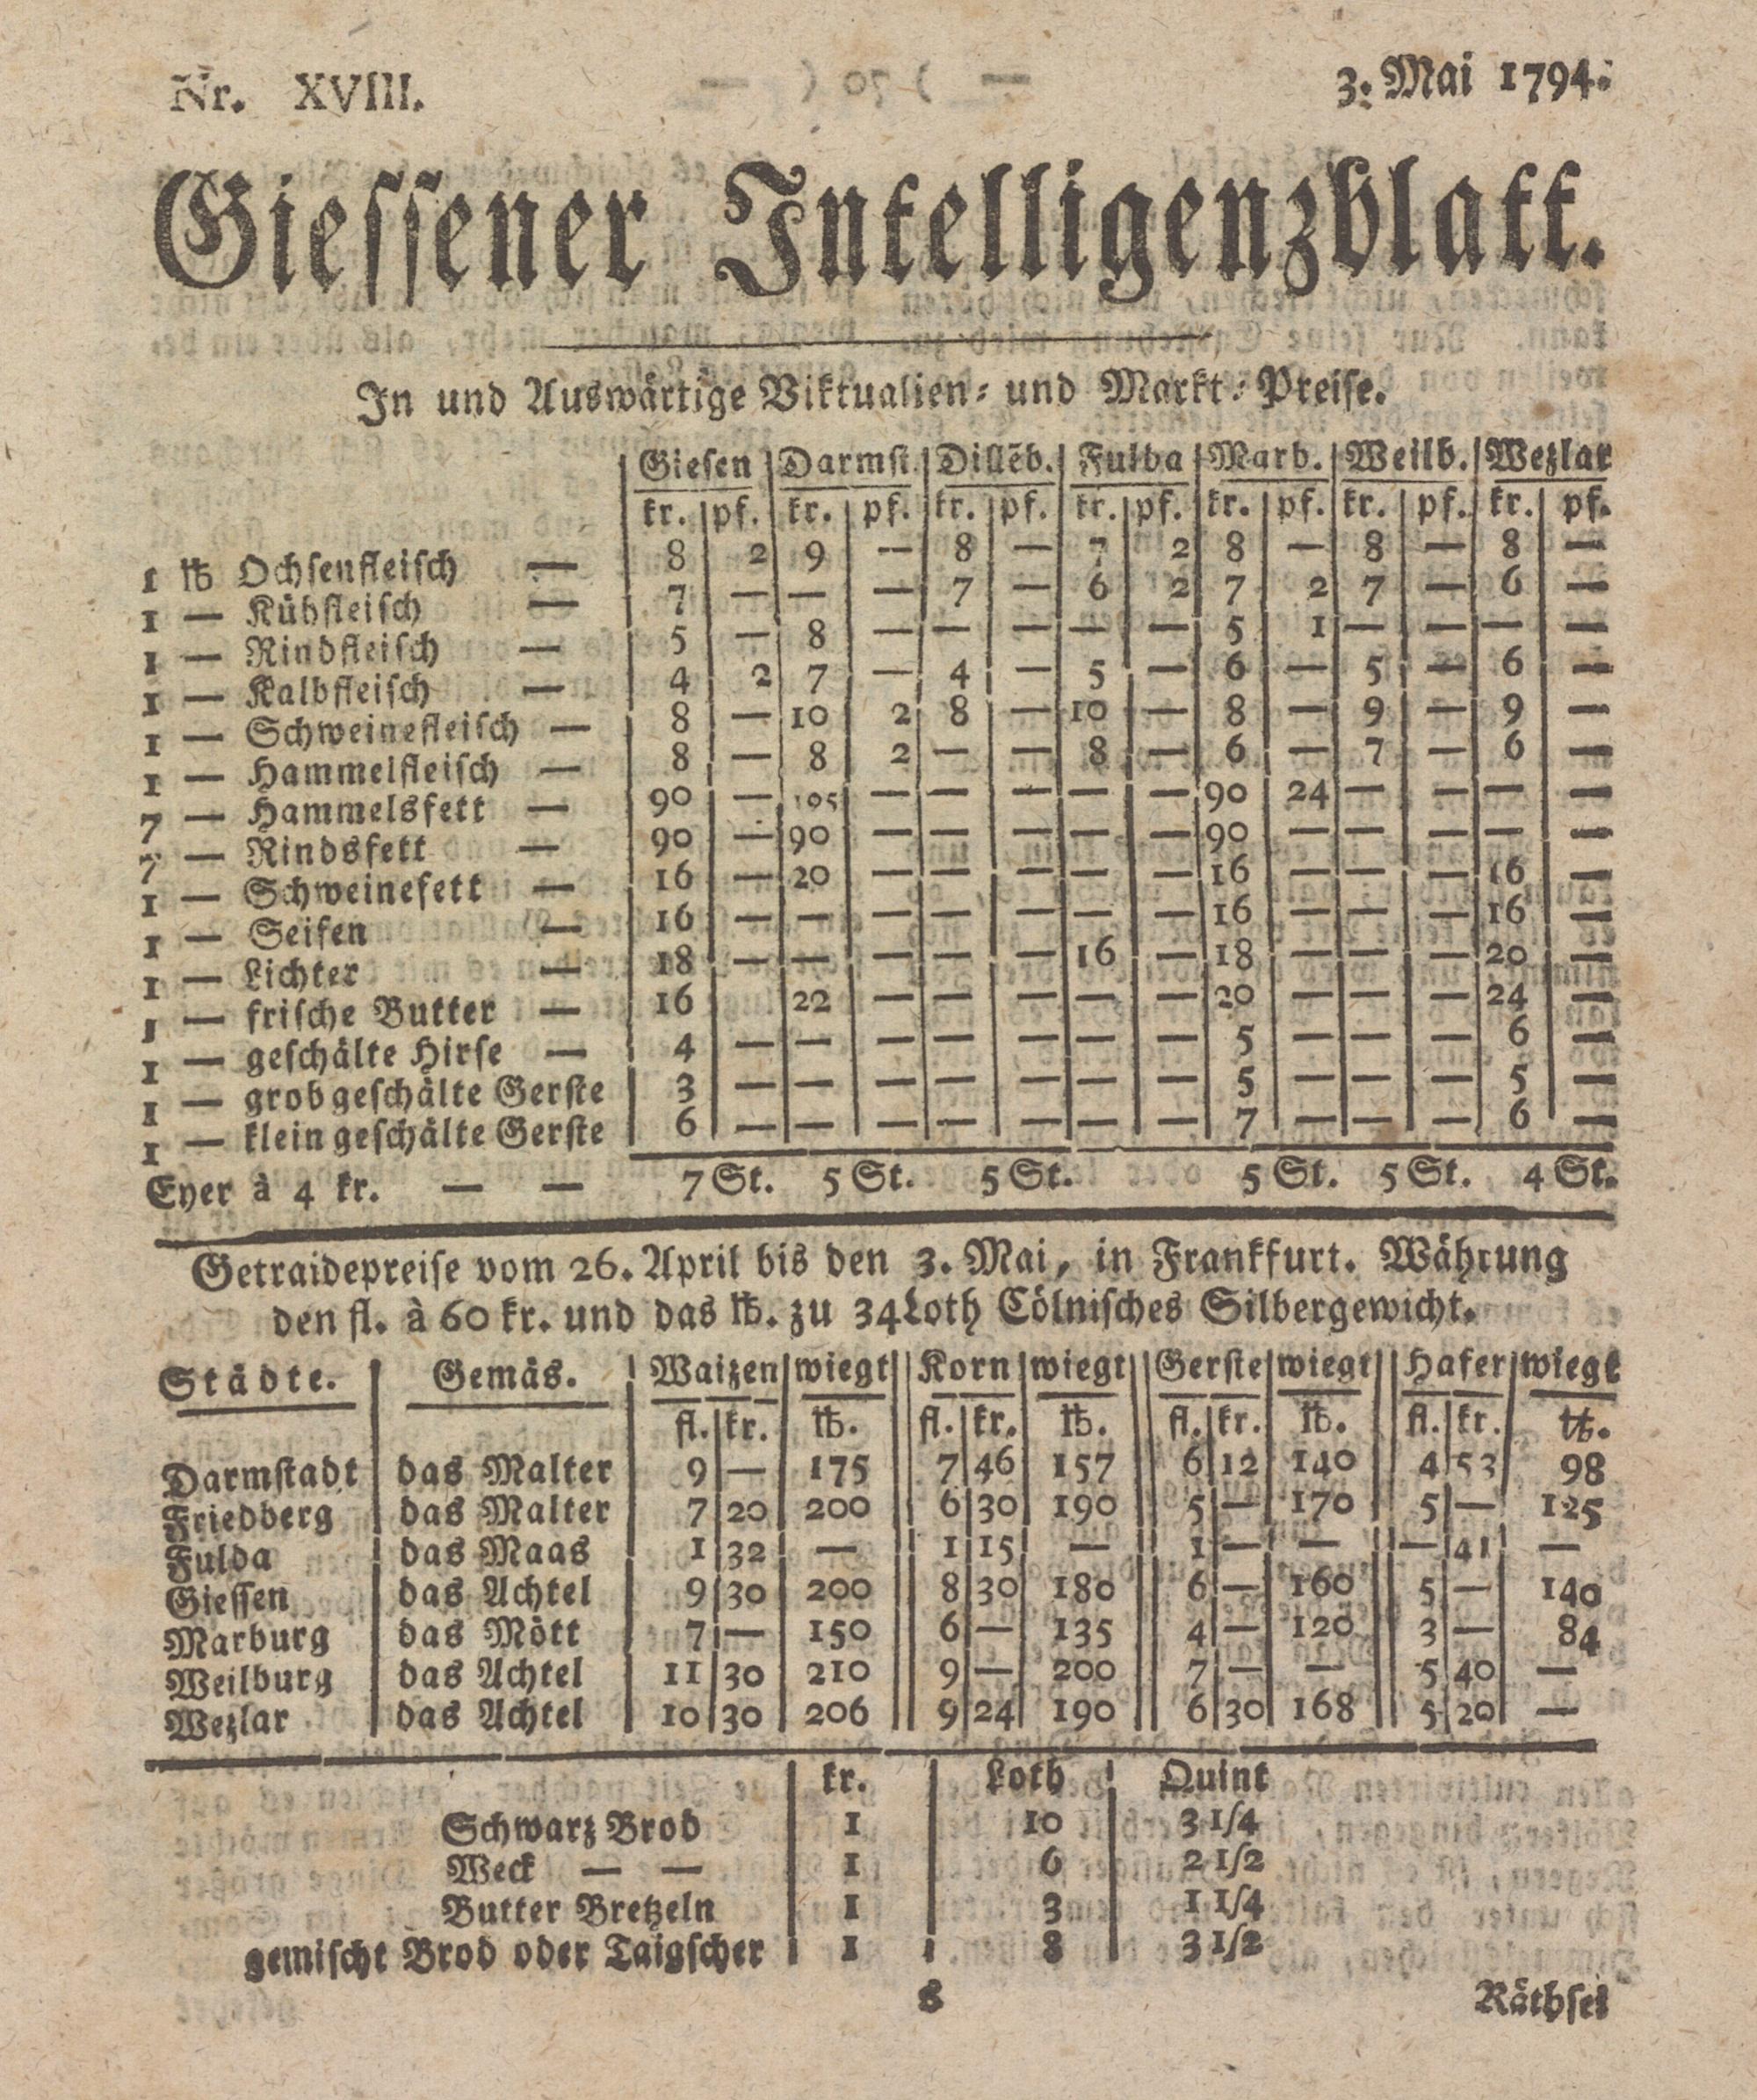 Nr. XVIII. 3. Mai 1794.
Giessener Intelligenzblatt.
In und Auswärtige Viktualien- und Markt-Preise.
Giesen Darmst. Dillēb. Fulda Marb. Weilb. Wezlar
kr. pf. kr. pf. kr. pf. kr. pf. kr. pf. kr. pf. kr. pf.
1 ℔ Ochsenfleisch — 8 2 9 — 8 — 7 2 8 — 8 — 8 —
1 — Kühfleisch — 7 — — — 7 — 6 2 7 2 7 — 6 —
1 — Rindfleisch — 5 — 8 — — — — — 5 1 — — — —
1 — Kalbfleisch — 4 2 7 — 4 — 5 — 6 — 5 — 6 —
1 — Schweinefleisch — 8 — 10 2 8 — 10 — 8 — 9 — 9 —
1 — Hammelfleisch — 8 — 8 2 — — 8 — 6 — 7 — 6 —
7 — Hammelsfett — 90 — 105 — — — — — 90 24 — — — —
7 — Rindsfett — 90 — 90 — — — — — 90 — — — — —
1 — Schweinefett — 16 — 20 — — — — — 16 — — — 16 —
1 — Seifen — 16 — — — — — — — 16 — — — 16 —
1 — Lichter — 18 — — — — — 16 — 18 — — — 20 —
1 — frische Butter — 16 22 — — — — — 20 — — — 24 —
1 — geschälte Hirse — 4 — — — — — — — 5 — — — 6 —
1 — grob geschälte Gerste 3 — — — — — — — 5 — — — 5 —
1 — klein geschälte Gerste 6 — — — — — — — 7 — — — 6 —
Eyer à 4 kr. — — 7 St. 5 St. 5 St. 5 St. 5 St. 4 St.
Getraidepreise vom 26. April bis den 3. Mai, in Frankfurt. Währung
den fl. à 60 kr. und das ℔. zu 34 Loth Cölnisches Silbergewicht.
Städte. Gemäs. Waizen wiegt Korn wiegt Gerste wiegt Hafer wiegt
fl. kr. ℔. fl. kr. ℔. fl. kr. ℔. fl. kr. ℔.
Darmstadt das Malter 9 — 175 7 46 157 6 12 140 4 53 98
Friedberg das Malter 7 20 200 6 30 190 5 — 170 5 — 125
Fulda das Maas 1 32 — 1 15 — 1 — — — 41 —
Giessen das Achtel 9 30 200 8 30 180 6 — 160 5 — 140
Marburg das Mött 7 — 150 6 — 135 4 — 120 3 — 84
Weilburg das Achtel 11 30 210 9 — 200 7 — — 5 40 —
Wezlar das Achtel 10 30 206 9 24 190 6 30 168 5 20 —
kr. Loth Quint
Schwarz Brod 1 10 3 1/4
Weck — — 1 6 2 1/2
Butter Bretzeln 1 3 1 1/4
gemischt Brod oder Taigscher 1 8 3 1/2
S Räthsel